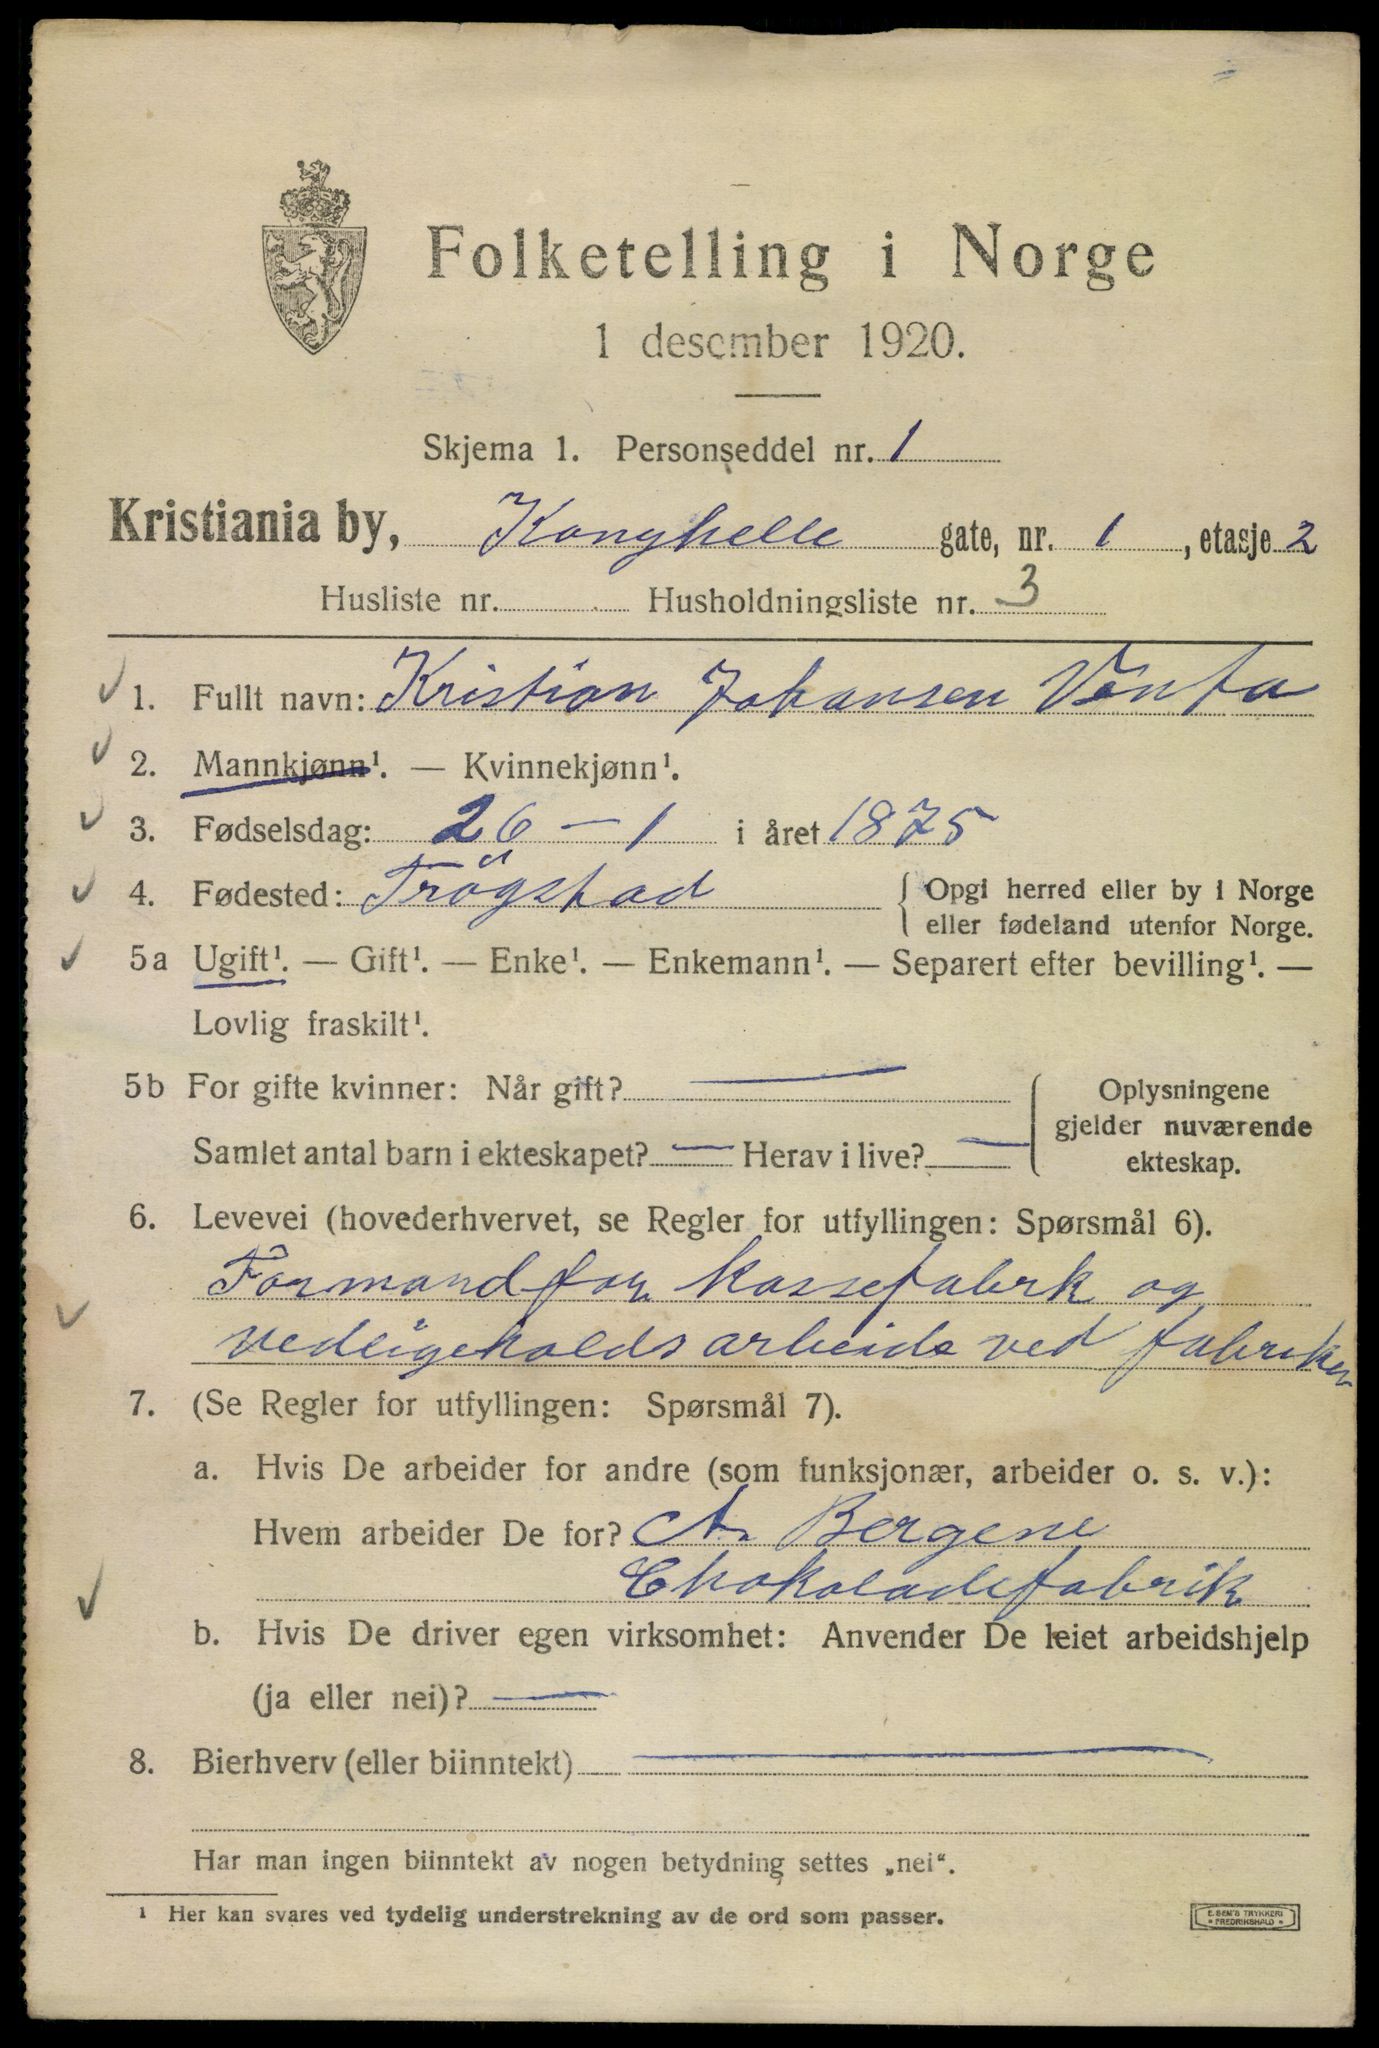 Folketelling i Norge
1 desember 1920.
Skjema 1. Personseddel nr. 1
Kristiania by, Konghelle gate, nr. 1, etasje 2
Husliste nr. Husholdningsliste nr. 3
1. Fullt navn: Kristian Johansen
2. Mannkjønn¹. — Kvinnekjønn¹.
3. Fødselsdag: 26 – 1 i året 1875
4. Fødested: Trögstad { Opgi herred eller by i Norge
eller fødeland utenfor Norge.
5a Ugift¹. — Gift¹. — Enke¹. — Enkemann¹. — Separert efter bevilling¹. —
Lovlig fraskilt¹.
5b For gifte kvinner: Når gift? —
Samlet antal barn i ekteskapet? — Herav i live? —
Oplysningene
gjelder nuværende
ekteskap.
6. Levevei (hovederhvervet, se Regler for utfyllingen: Spørsmål 6).
Formand for kassefabrk og
vedligeholds arbeide ved fabriken
7. (Se Regler for utfyllingen: Spørsmål 7).
a. Hvis De arbeider for andre (som funksjonær, arbeider o. s. v.):
Hvem arbeider De for? A. Bergene
Chokoladefabrik
b. Hvis De driver egen virksomhet: Anvender De leiet arbeidshjelp
(ja eller nei)? —
8. Bierhverv (eller biinntekt) —
Har man ingen biinntekt av nogen betydning settes „nei“.
¹ Her kan svares ved tydelig understrekning av de ord som passer.
E. SEM'S TRYKKERI
FREDRIKSHALD